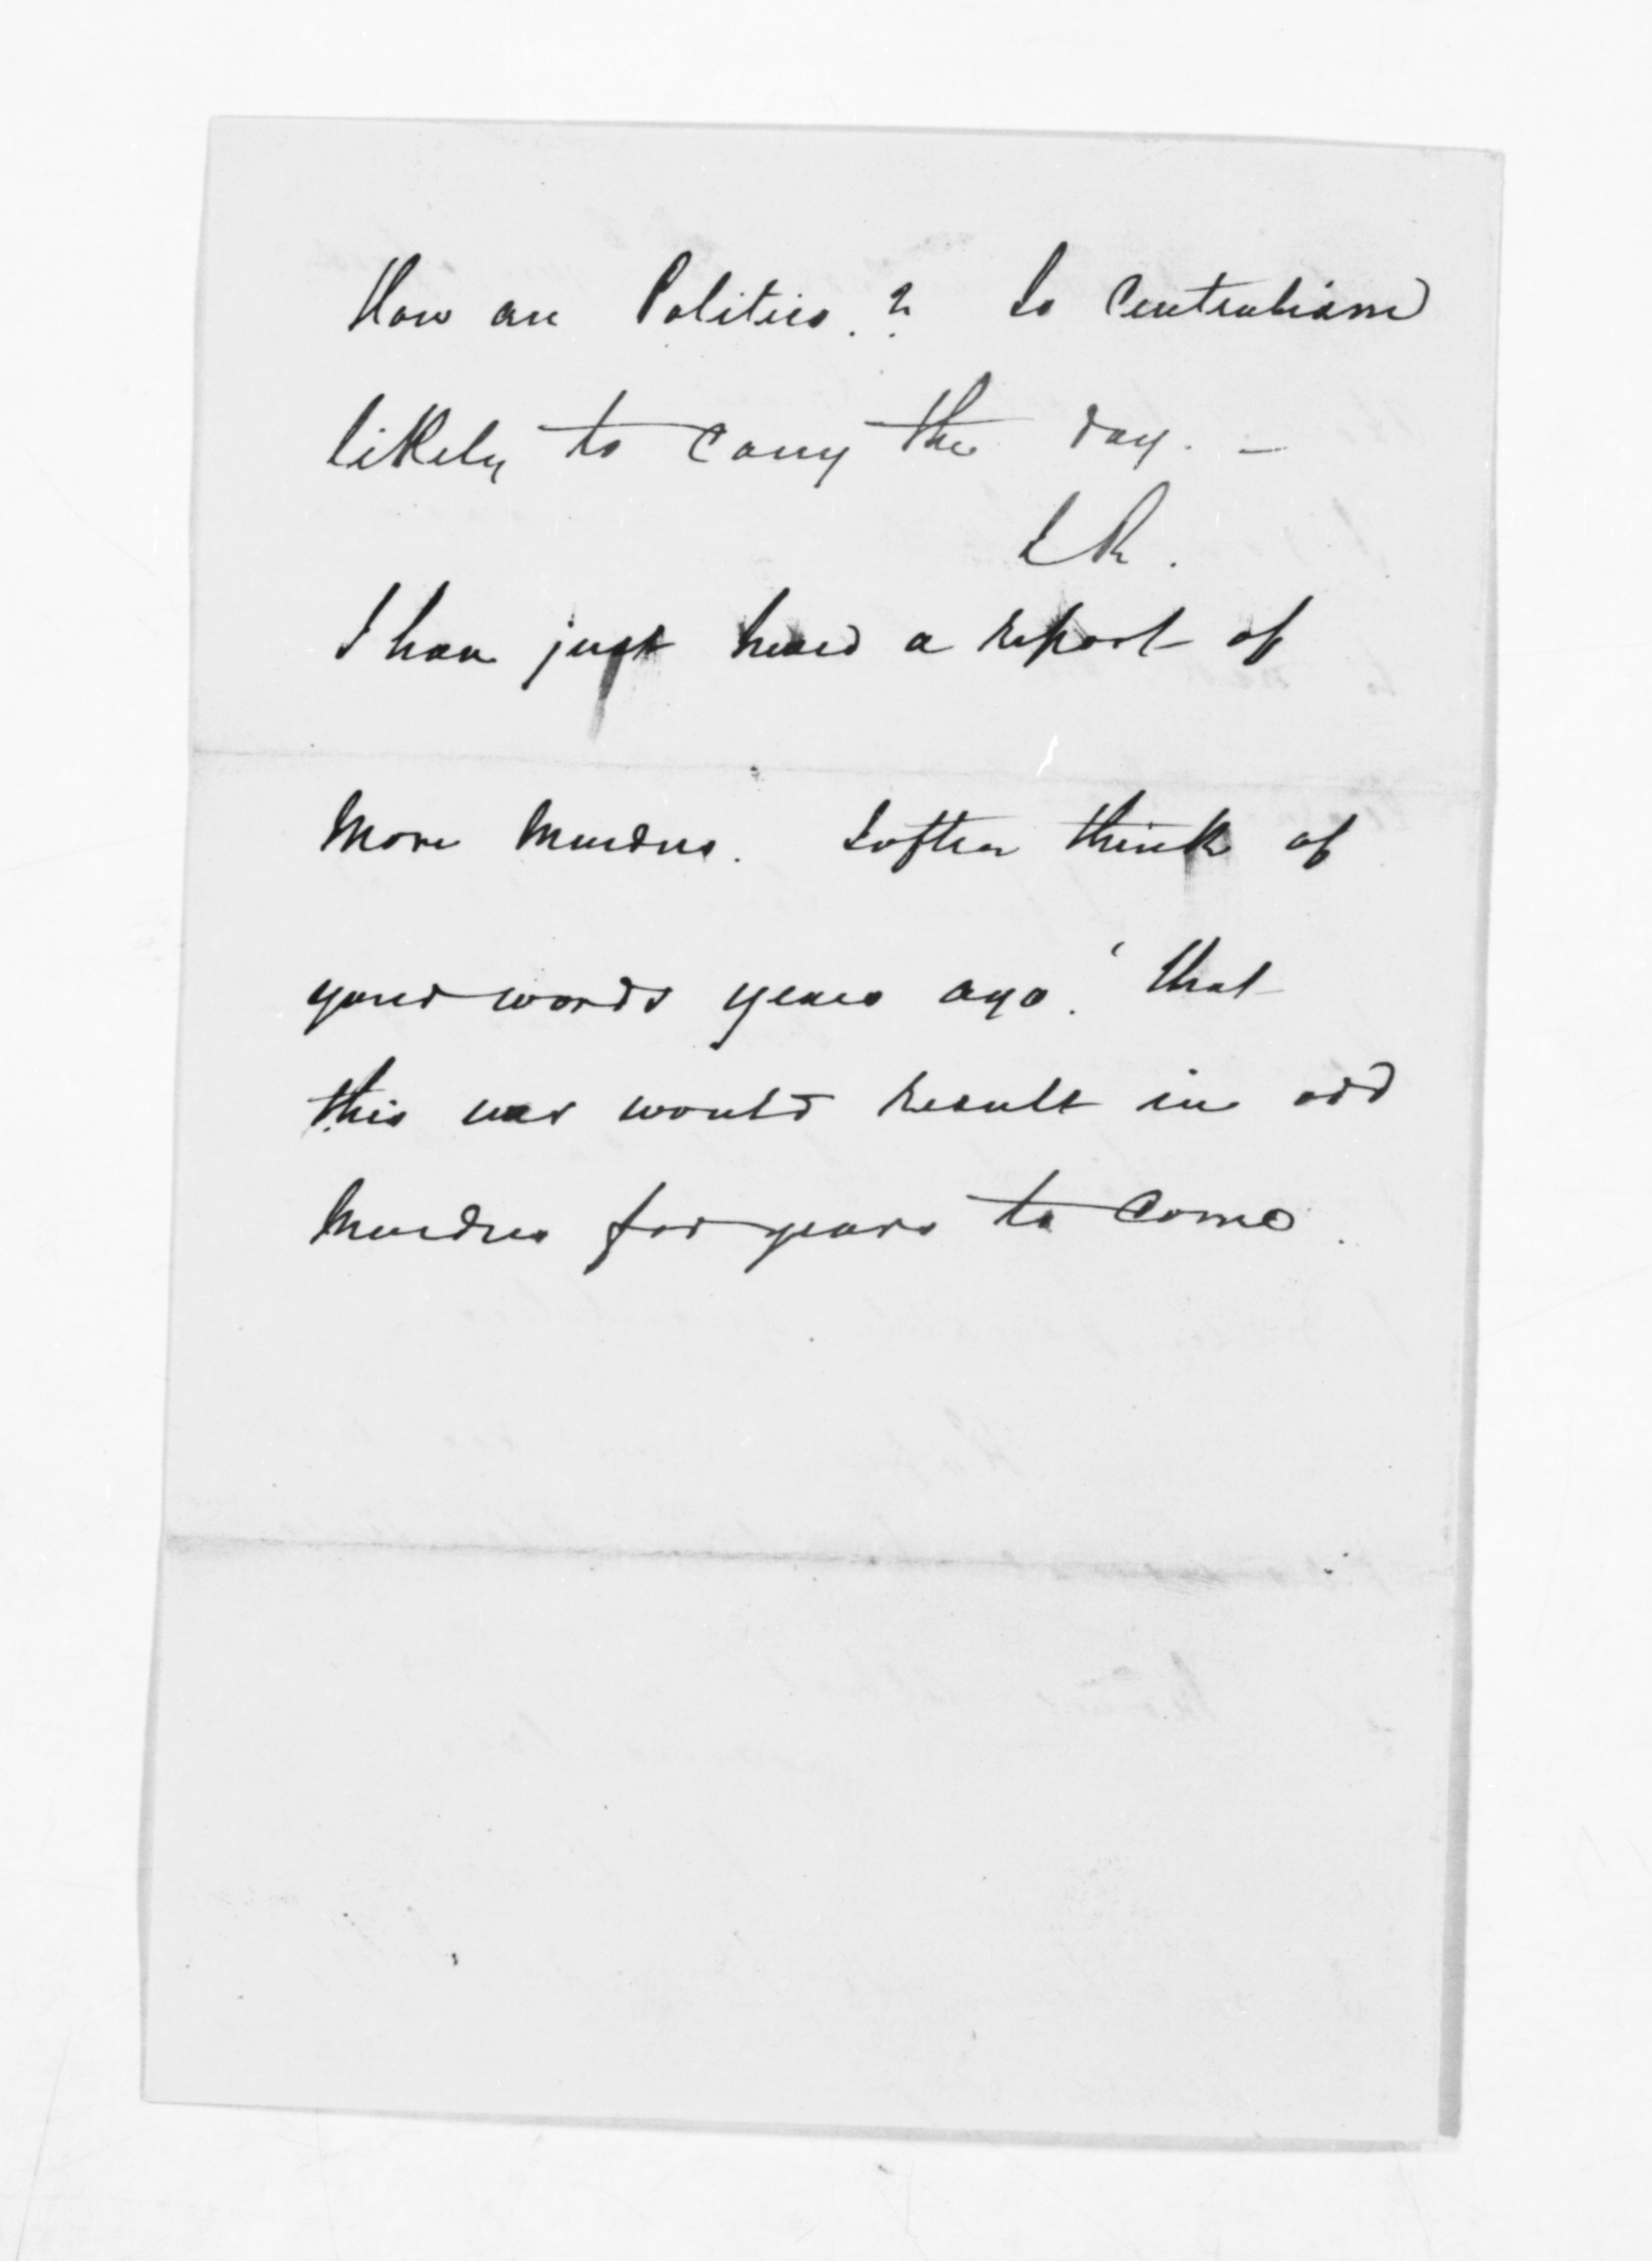 How are Politics.? Is Centralism
likely to carry the day. –
I R.
I have just heard a report of
more murders. I often think of
your words years ago. 'that
this war would result in odd
murders for years to come.